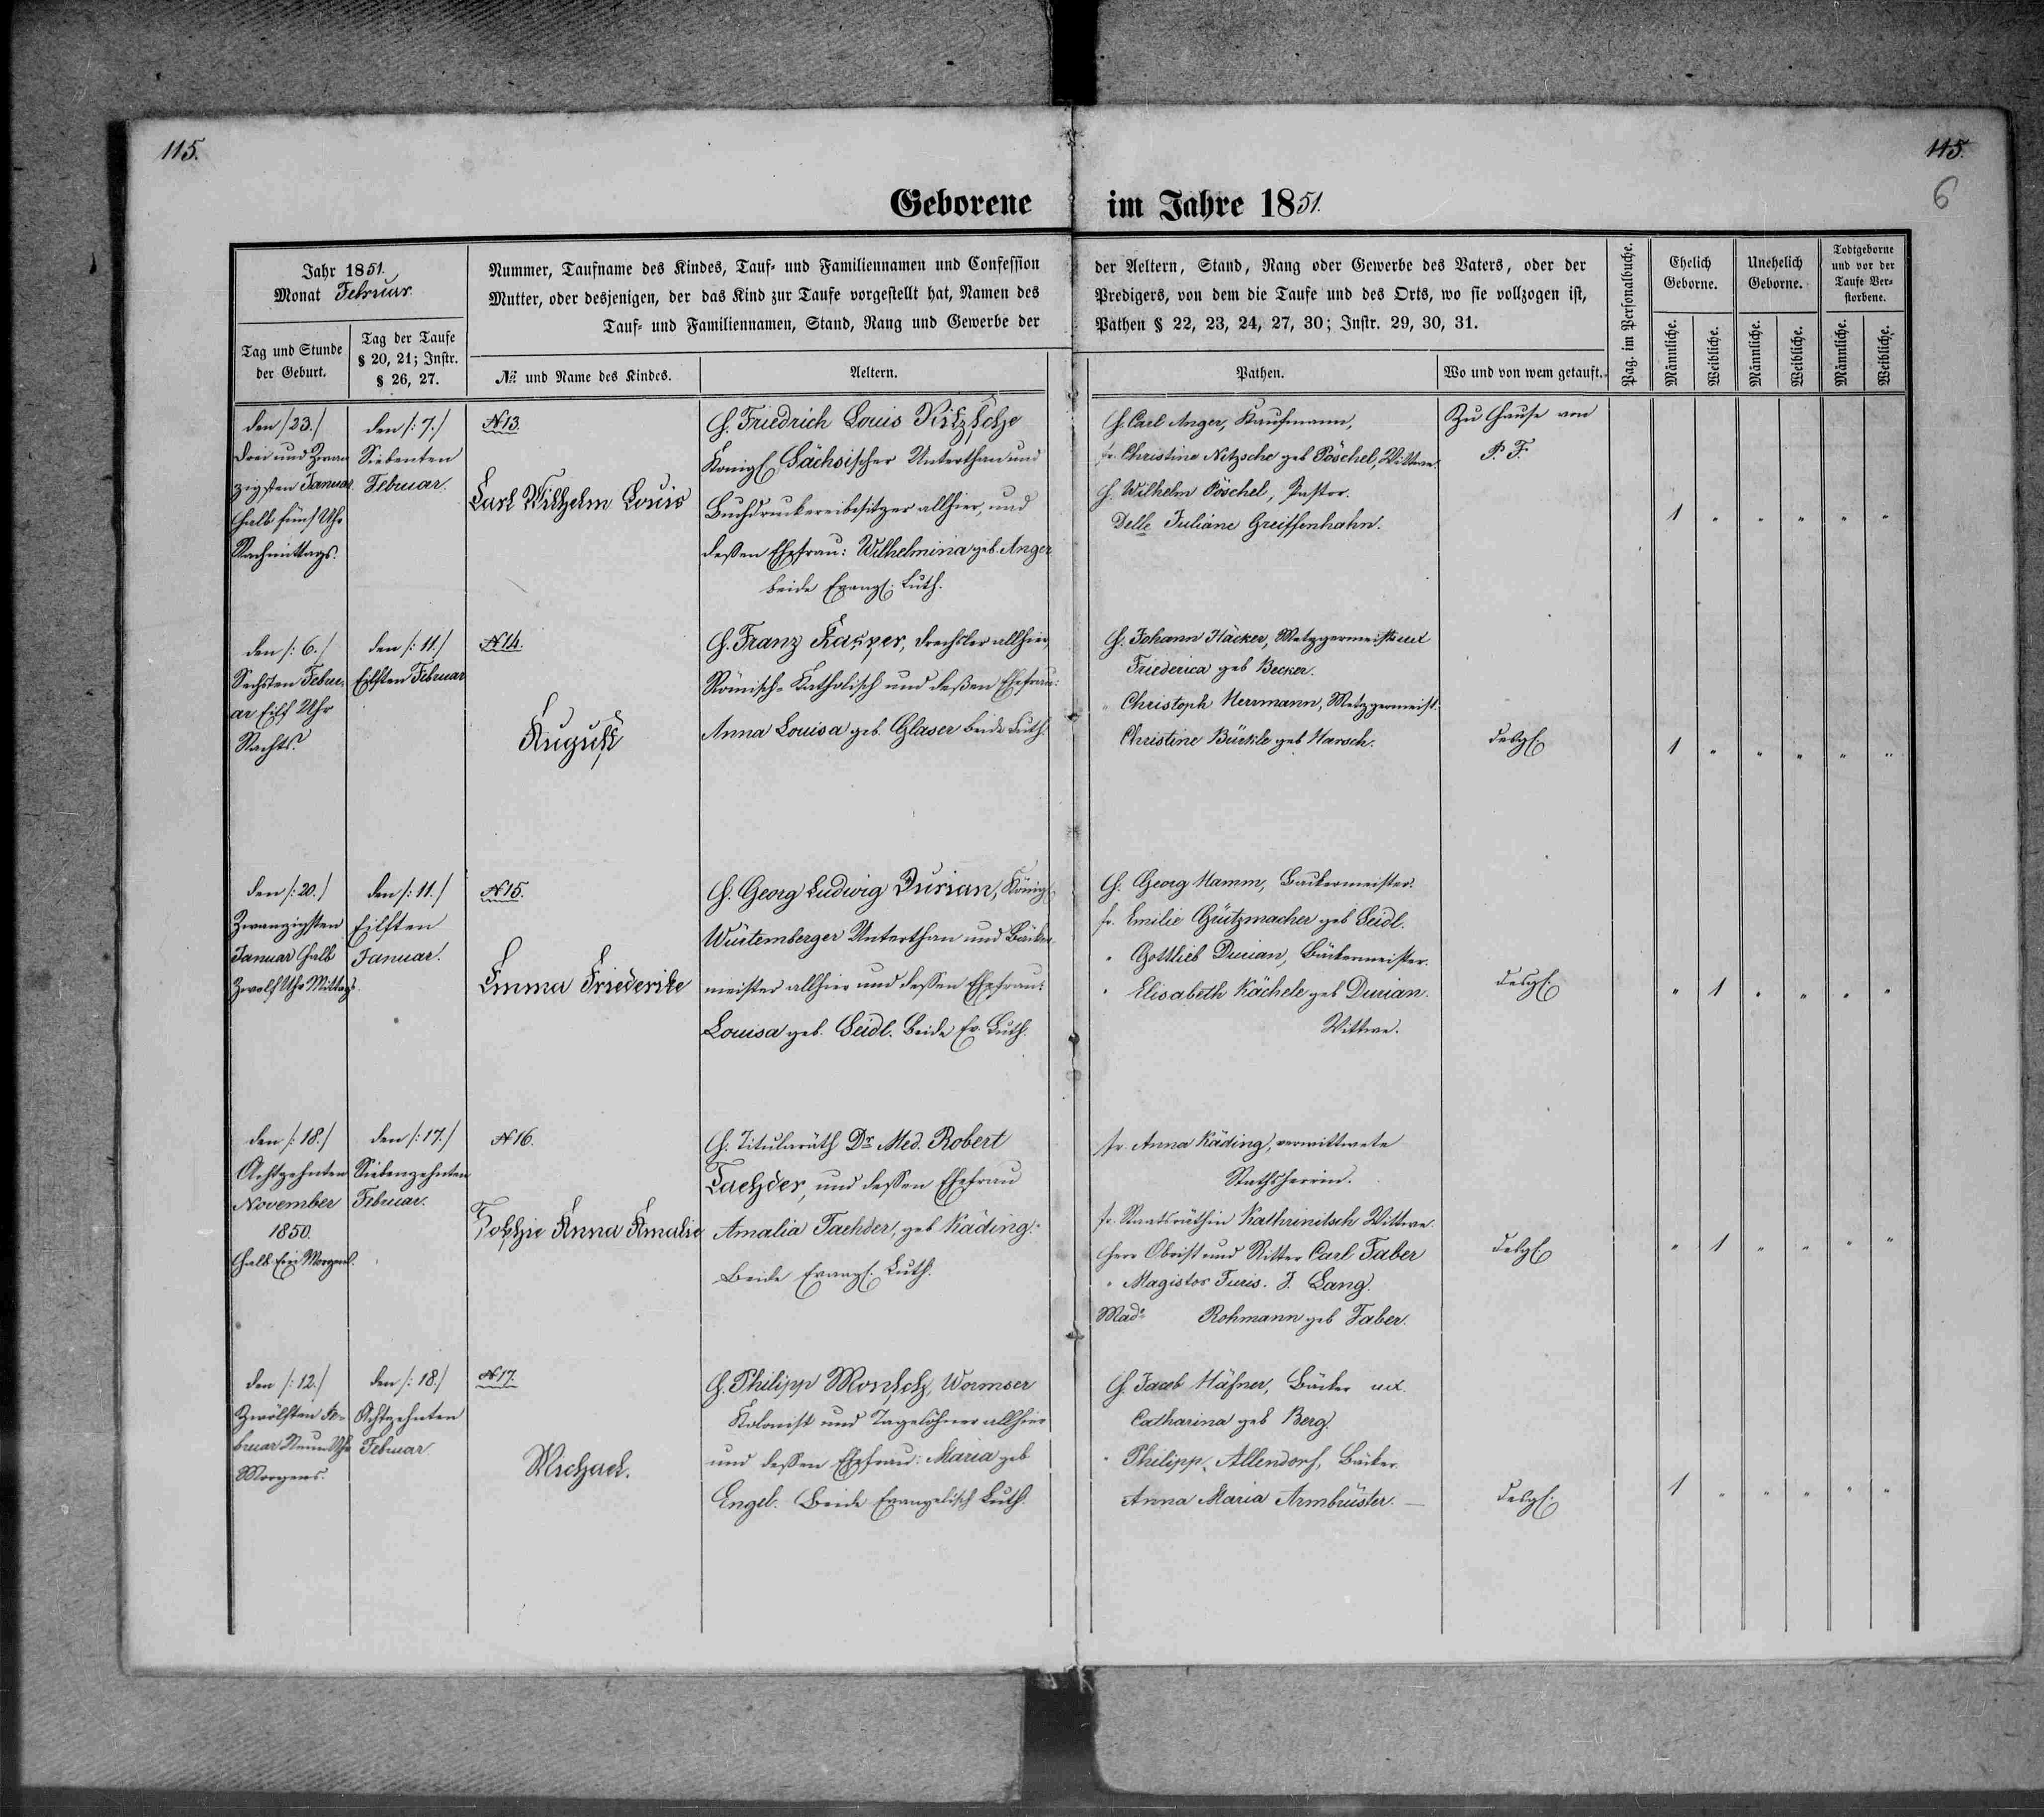 115.
115.
6
Geborene im Jahre 1851.
Jahr 1851.
Monat Februar
Nummer, Taufname des Kindes, Tauf- und Familiennamen und Confession
Mutter, oder desjenigen, der das Kind zur Taufe vorgestellt hat, Namen des
Tauf- und Familiennamen, Stand, Rang und Gewerbe der
der Aeltern, Stand, Rang oder Gewerbe des Vaters, oder der
Predigers, von dem die Taufe und des Orts, wo sie vollzogen ist,
Pathen § 22, 23, 24, 27, 30; Instr. 29, 30, 31.
Pag. im Personalbuche.
Ehelich
Geborne.
Unehelich
Geborne.
Todtgeborne
und vor der
Taufe Ver-
storbene.
Tag und Stunde
der Geburt.
Tag der Taufe
§ 20, 21; Instr.
§ 26, 27.
№ und Name des Kindes.
Aeltern.
Pathen.
Wo und von wem getauft.
Männliche.
Weibliche.
Männliche.
Weibliche.
Männliche.
Weibliche.
den /23./
Drei und Zwan
zigsten Januar
halb fünf Uhr
Nachmittags.
den /: 7./
Siebenten
Februar.
N 13.
Carl Wilhelm Louis
H. Friedrich Louis Nitzsche
Königl Sächsischer Unterthan und
Buchdruckereibesitzer allhier, und
deßen Ehefrau: Wilhelmina geb. Anger
beide Evangl: Luth.
H. Carl Anger, Kaufmann,
fr. Christine Nitzsche geb Pöschel, Wittwe.
H. Wilhelm Pöschel, Pastor.
Delle Juliane Greiffenhahn.
Zu Hause von
P. F.
1 " " " " "
den /: 6./
Sechsten Febru,
ar Eilf Uhr
Nachts.
den /: 11./
Eilften Februar
N 14.
August
H. Franz Kasper, Drechsler allhier,
Römisch-Katholisch und deßen Ehefrau:
Anna Louisa geb. Glaser beide Luth.
H. Johann Häcker, Metzgermeist: ux
Friederica geb Becker.
" Christoph Herrmann, Metzgermeist.
Christine Bürkle geb Harsch.
desgl
1 " " " " "
den /: 20./
Zwanzigsten
Januar halb
Zwölf Uhr Mittags.
den /: 11./
Eilften
Januar.
N 15.
Emma Friederike
H. Georg Ludwig Durian, Königl.
Würtemberger Unterthan und Bäcker
meister allhier und deßen Ehefrau:
Louisa geb. Seidl. Beide Ev. Luth.
H. Georg Hamm, Bäckermeister.
fr. Emilie Grützmacher geb Seidl.
" Gottlieb Durian, Bäckermeister.
" Elisabeth Kächele geb Durian.
Wittwe.
desgl.
" 1 " " " "
den /: 18./
Achtzehnten
November
1850.
halb Ein Morgens.
den /: 17./
Siebenzehnten
Februar.
N 16.
Sophie Anna Amalie
H. Titularäth Dr Med. Robert
Taehder, und deßen Ehefrau
Amalia Taehder, geb Käding.
Beide Evangl. Luth.
fr. Anna Käding, verwittwete
fr. Staatsräthin Kathrinitsch Wittwe.
Herr Obrist und Ritter Carl Faber
" Magistor Juris. J. Lang.
Mad: Rohmann geb Faber.
desgl
" 1 " " " "
den /: 12./
Zwölften Fe-
bruar Neun Uhr
Morgens.
den /: 18./
Achtzehnten
Februar
N 17.
Michael.
H. Philipp Monsch, Wormser
Kolonist und Tagelöhner allhier
und deßen Ehefrau: Maria geb
Engel. Beide Evangelisch Luth.
H. Jacob Häfner, Bäcker ux.
Catharina geb Berg.
" Philipp Allendorf, Bäcker.
Anna Maria Armbrüster. —
desgl.
1 " " " " "